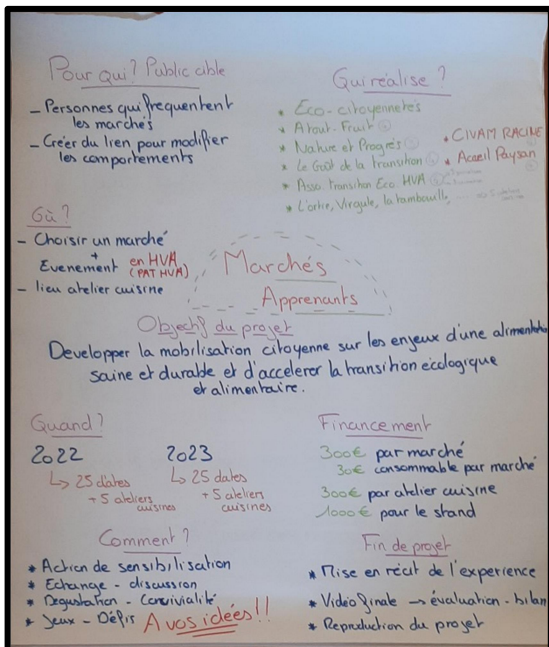 Pour qui? Public cible
- Personnes qui frequentent
les marchés
- Créer du lien pour modifier
les comportements
Qui réalise ?
* Eco-citoyennetés
* Atout-Fruit
* Nature et Progrès
* Le Goût de la transition
* Asso. transition Eco. HVA
* L'ortie, Virgule, la tambouille,
* CIVAM RACINE
* Accueil Paysan
Où ?
- Choisir un marché
+
Evenement en HVA
(PAT HVA)
- lieu atelier cuisine
Marchés
Apprenants
Objectif du projet
Developper la mobilisation citoyenne sur les enjeux d'une alimentation
saine et durable et d'accelerer la transition écologique
et alimentaire.
Quand ?
2022
↳ 25 dates
+ 5 ateliers
cuisines
2023
↳ 25 dates
+ 5 ateliers
cuisines
Financement
300€ par marché
30€ consommable par marché
300€ par atelier cuisine
1000€ pour le stand
Comment ?
* Action de sensibilisation
* Echange - discussion
* Degustation - Convivialité
* Jeux - Défis
A vos idées !!
Fin de projet
* Mise en récit de l'experience
* Vidéo finale → évaluation - bilan
* Reproduction du projet